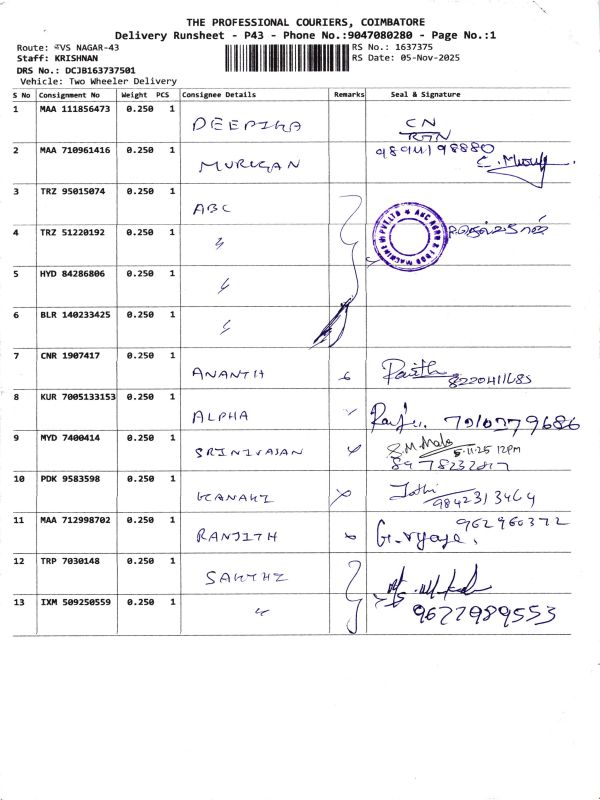 THE PROFESSIONAL COURIERS, COIMBATORE
Delivery Runsheet - P43 - Phone No.:9047080280 - Page No.:1
Route: VS NAGAR-43
RS No.: 1637375
Staff: KRISHNAN
RS Date: 05-Nov-2025
DRS No.: DCJB163737501
Vehicle: Two Wheeler Delivery
S No Consignment No Weight PCS Consignee Details Remarks Seal & Signature
1 MAA 111856473 0.250 1 DEEPIKA CN
2 MAA 710961416 0.250 1 MURUGAN 9894198880
3 TRZ 95015074 0.250 1 ABC
4 TRZ 51220192 0.250 1 〃
5 HYD 84286806 0.250 1 〃
6 BLR 140233425 0.250 1 〃
7 CNR 1907417 0.250 1 ANANTH 8220411685
8 KUR 7005133153 0.250 1 ALPHA 7010279686
9 MYD 7400414 0.250 1 SRINIVASAN 5.11.25 12PM
10 PDK 9583598 0.250 1 KANAKI Jothi 9842313464
11 MAA 712998702 0.250 1 RANJITH 962960372
12 TRP 7030148 0.250 1 SAKTHI
13 IXM 509250559 0.250 1 〃 9677989553